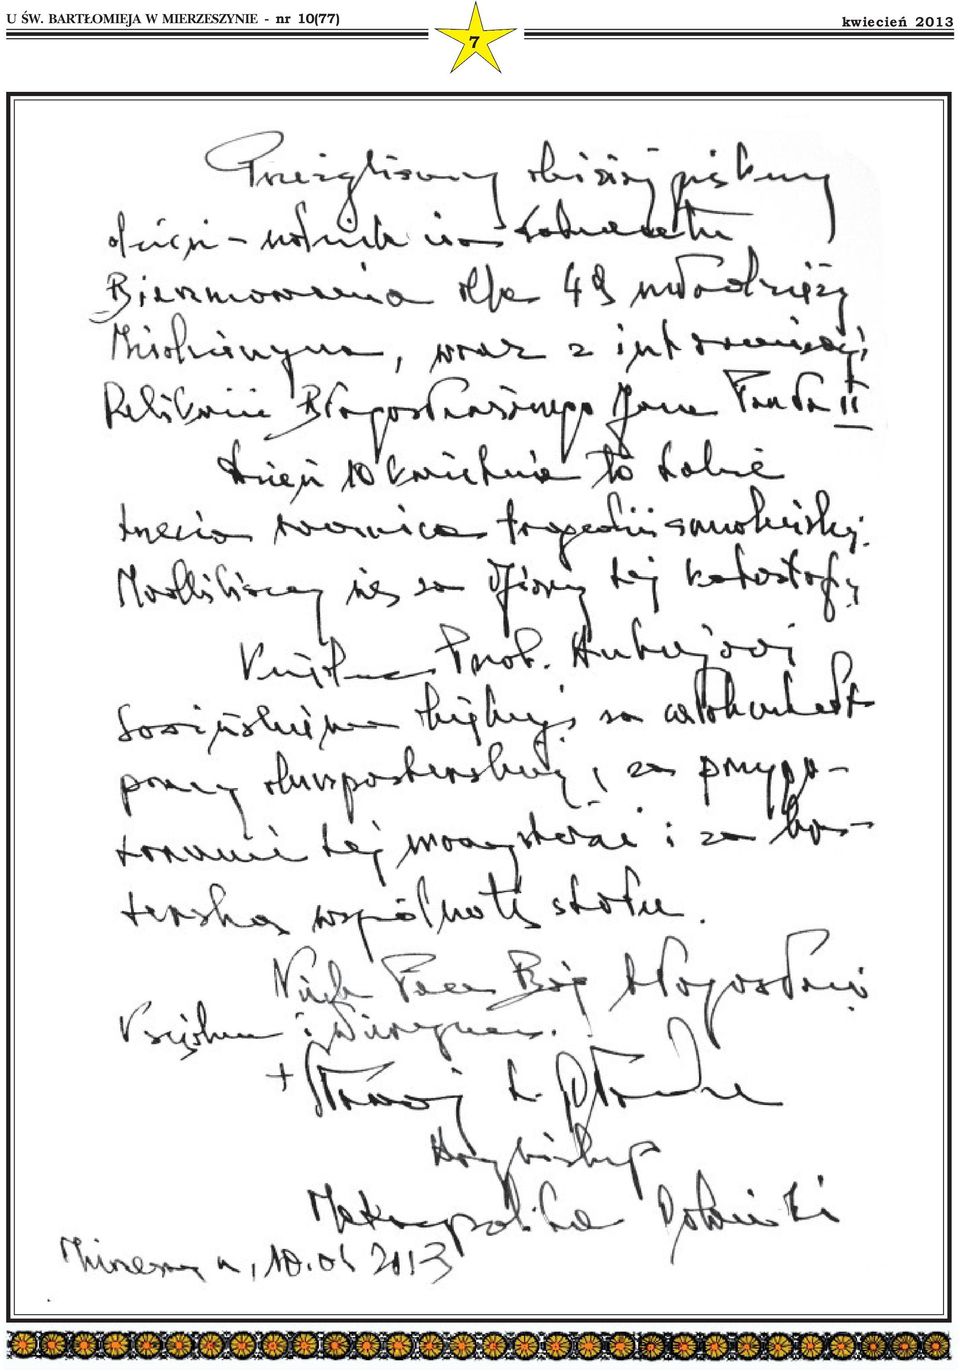 U ŚW. BARTŁOMIEJA W MIERZESZYNIE - nr 10(77)
kwiecień 2013
7
Przeżyliśmy dzisiaj piękny
dzień - udzielenia Sakramentu
Bierzmowania dla 49 młodzieży
, wraz z intronizacją
Relikwii Błogosławionego Jana Pawła II
Dzień 10 kwietnia to także
trzecia rocznica tragedii smoleńskiej.
Modliliśmy się za Ofiary tej katastrofy
Księdzu Prob. Andrzejowi
Sowińskiemu dziękuję za całokształt
pracy duszpasterskiej, za przygo-
towanie tej uroczystości i za bra-
terską wspólnotę stołu.
Niech Pan Bóg błogosławi
Księdzu i Wiernym.
+ Sławoj L. Głódź
Arcybiskup
Metropolita Gdański
Mierzeszyn, 10.04 2013